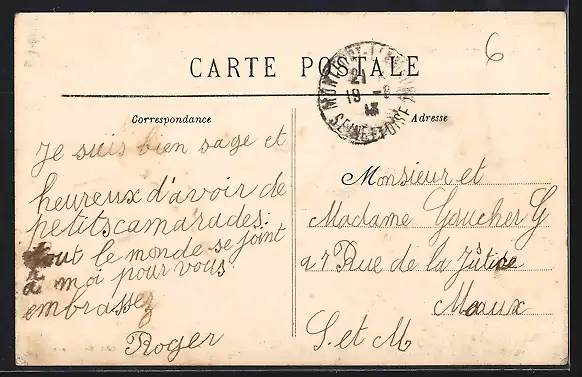 6
CARTE POSTALE
Correspondance
Adresse
SEINE-ET-OISE
Je suis bien sage et
heureux d'avoir de
petits camarades.
tout le monde se joint
a moi pour vous
embrassez
Roger
Monsieur et
Madame Goucher G
27 Rue de la Jûtice
Meaux
S. et M